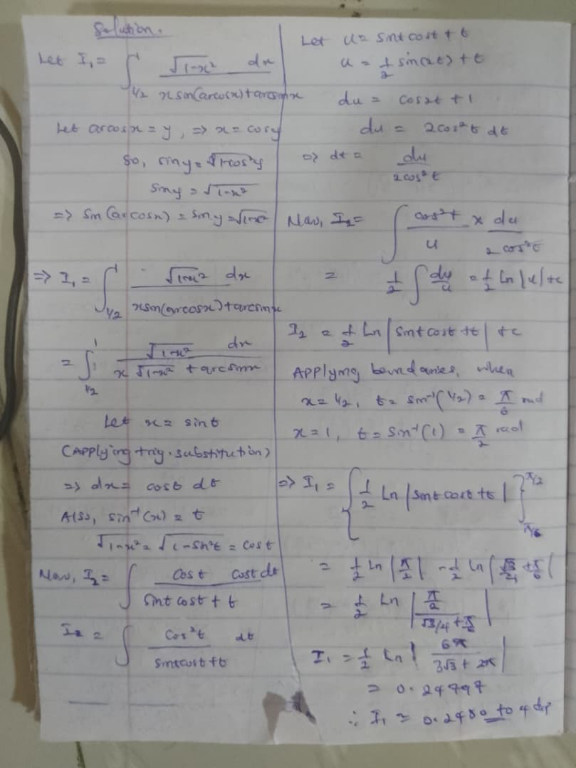 Solution.
Let I₁ = ∫_{1/2}^{1} √(1-x²) dx / (x sin(arccosx) + arcsinx)
Let arccosx = y, ⇒ x = cosy
So, siny = √(1-cos²y)
siny = √(1-x²)
⇒ Sin(arccosx) = siny = √(1-x²)
⇒ I₁ = ∫_{1/2}^{1} √(1-x²) dx / (x sin(arccosx) + arcsinx)
= ∫_{1/2}^{1} √(1-x²) dx / (x √(1-x²) + arcsinx)
Let x = sint
(Applying trig. substitution)
⇒ dx = cost dt
Also, sin⁻¹(x) = t
√(1-x²) = √(1-sin²t) = cost
Now, I₂ = ∫ cost cost dt / (sint cost + t)
I₂ = ∫ cos²t / (sintcost + t) dt
Let u = sintcost + t
u = 1/2 sin(2t) + t
du = cos2t + 1
du = 2cos²t dt
⇒ dt = du / 2cos²t
Now, I₂ = ∫ cos²t / u × du / 2cos²t
= 1/2 ∫ du/u = 1/2 ln|u| + c
I₂ = 1/2 ln|sintcost + t| + c
Applying boundaries, when
x = 1/2, t = sin⁻¹(1/2) = π/6 rad
x = 1, t = Sin⁻¹(1) = π/2 rad
⇒ I₁ = {1/2 ln|sintcost + t|}_{π/6}^{π/2}
= 1/2 ln|π/2| - 1/2 ln|√3/4 + π/6|
= 1/2 ln|(π/2) / (√3/4 + π/6)|
I₁ = 1/2 ln|6π / (3√3 + 2π)|
= 0.24797
∴ I₁ = 0.2480 to 4 dp